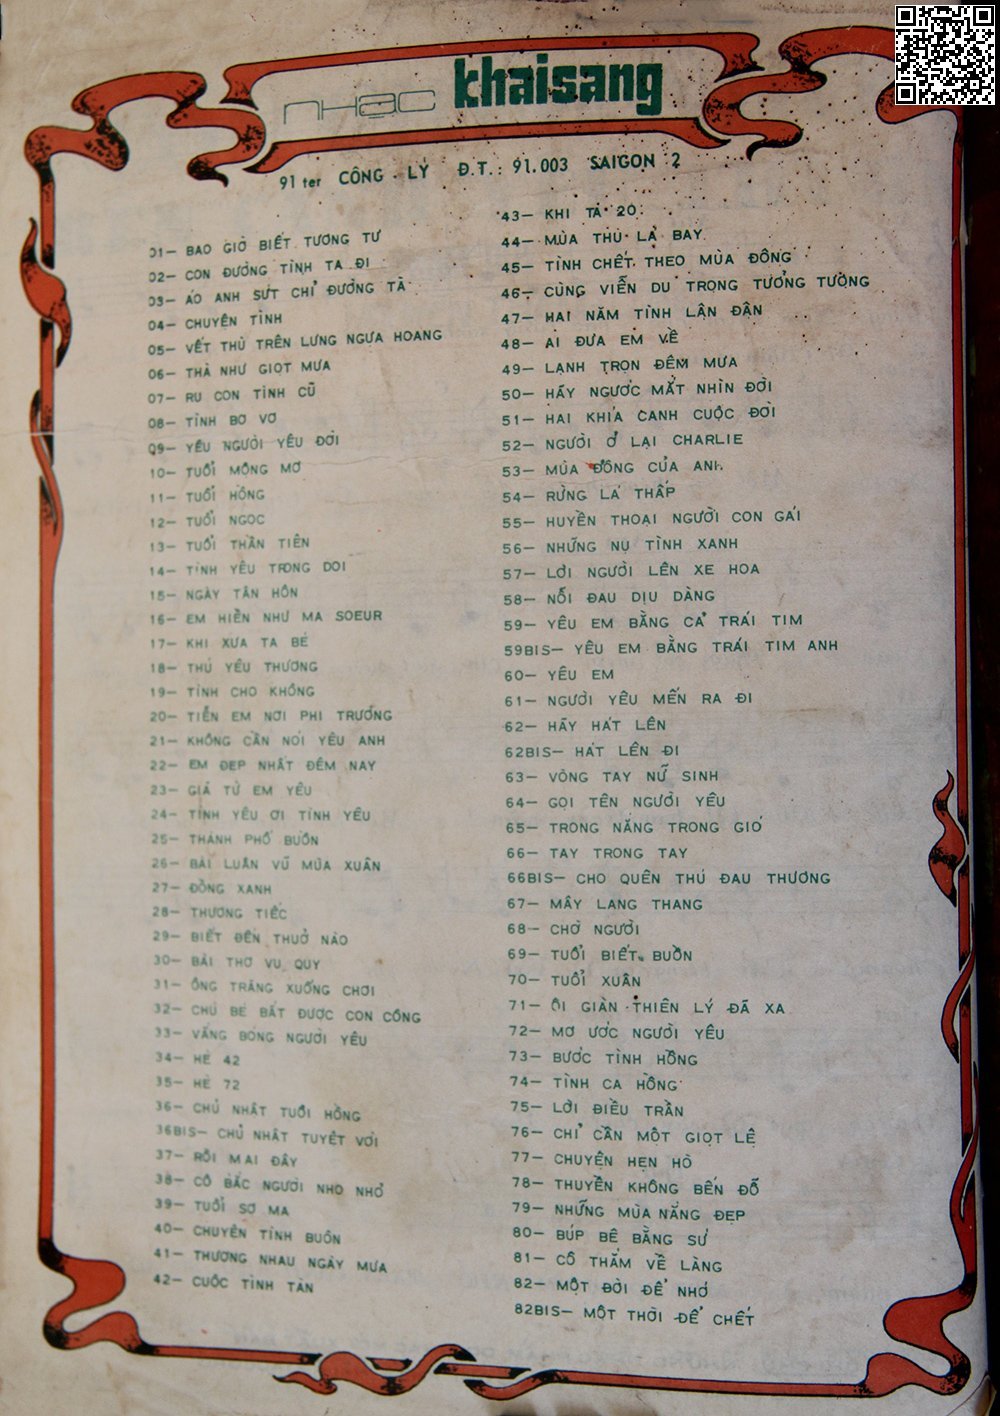 nhạc khaisang
91 ter CÔNG - LÝ Đ.T.: 91.003 SAIGON 2
01— BAO GIỜ BIẾT TƯƠNG TƯ
02— CON ĐƯỜNG TÌNH TA ĐI
03— ÁO ANH SỨT CHỈ ĐƯỜNG TÀ
04— CHUYỆN TÌNH
05— VẾT THÙ TRÊN LƯNG NGỰA HOANG
06— THÀ NHƯ GIỌT MƯA
07— RU CON TÌNH CŨ
08— TÌNH BƠ VƠ
09— YÊU NGƯỜI YÊU ĐỜI
10— TUỔI MỘNG MƠ
11— TUỔI HỒNG
12— TUỔI NGỌC
13— TUỔI THẦN TIÊN
14— TÌNH YÊU TRONG DOI
15— NGÀY TÂN HÔN
16— EM HIỀN NHƯ MA SOEUR
17— KHI XƯA TA BÉ
18— THÚ YÊU THƯƠNG
19— TÌNH CHO KHÔNG
20— TIỄN EM NƠI PHI TRƯỜNG
21— KHÔNG CẦN NÓI YÊU ANH
22— EM ĐẸP NHẤT ĐÊM NAY
23— GIÃ TỪ EM YÊU
24— TÌNH YÊU ƠI TÌNH YÊU
25— THÀNH PHỐ BUỒN
26— BÀI LUÂN VŨ MÙA XUÂN
27— ĐỒNG XANH
28— THƯƠNG TIẾC
29— BIẾT ĐẾN THUỞ NÀO
30— BÀI THƠ VU QUY
31— ÔNG TRĂNG XUỐNG CHƠI
32— CHÚ BÉ BẮT ĐƯỢC CON CÔNG
33— VẮNG BÓNG NGƯỜI YÊU
34— HÈ 42
35— HÈ 72
36— CHỦ NHẬT TUỔI HỒNG
36BIS— CHỦ NHẬT TUYỆT VỜI
37— RỒI MAI ĐÂY
38— CÔ BẮC NGƯỜI NHO NHỎ
39— TUỔI SƠ MA
40— CHUYỆN TÌNH BUỒN
41— THƯƠNG NHAU NGÀY MƯA
42— CUỘC TÌNH TÀN
43— KHI TA 20
44— MÙA THU LÁ BAY
45— TÌNH CHẾT THEO MÙA ĐÔNG
46— CÙNG VIỄN DU TRONG TƯỞNG TƯỢNG
47— HAI NĂM TÌNH LẬN ĐẬN
48— AI ĐƯA EM VỀ
49— LẠNH TRỌN ĐÊM MƯA
50— HÃY NGƯỚC MẮT NHÌN ĐỜI
51— HAI KHÍA CẠNH CUỘC ĐỜI
52— NGƯỜI Ở LẠI CHARLIE
53— MÙA ĐÔNG CỦA ANH
54— RỪNG LÁ THẤP
55— HUYỀN THOẠI NGƯỜI CON GÁI
56— NHỮNG NỤ TÌNH XANH
57— LỜI NGƯỜI LÊN XE HOA
58— NỖI ĐAU DỊU DÀNG
59— YÊU EM BẰNG CẢ TRÁI TIM
59BIS— YÊU EM BẰNG TRÁI TIM ANH
60— YÊU EM
61— NGƯỜI YÊU MẾN RA ĐI
62— HÃY HÁT LÊN
62BIS— HÁT LÊN ĐI
63— VÒNG TAY NỮ SINH
64— GỌI TÊN NGƯỜI YÊU
65— TRONG NẮNG TRONG GIÓ
66— TAY TRONG TAY
66BIS— CHO QUÊN THÚ ĐAU THƯƠNG
67— MÂY LANG THANG
68— CHỜ NGƯỜI
69— TUỔI BIẾT BUỒN
70— TUỔI XUÂN
71— ÔI GIÀN THIÊN LÝ ĐÃ XA
72— MƠ ƯỚC NGƯỜI YÊU
73— BƯỚC TÌNH HỒNG
74— TÌNH CA HỒNG
75— LỜI ĐIÊU TRẦN
76— CHỈ CẦN MỘT GIỌT LỆ
77— CHUYỆN HẸN HÒ
78— THUYỀN KHÔNG BẾN ĐỖ
79— NHỮNG MÙA NẮNG ĐẸP
80— BÚP BÊ BẰNG SỨ
81— CÔ THẮM VỀ LÀNG
82— MỘT ĐỜI ĐỂ NHỚ
82BIS— MỘT THỜI ĐỂ CHẾT